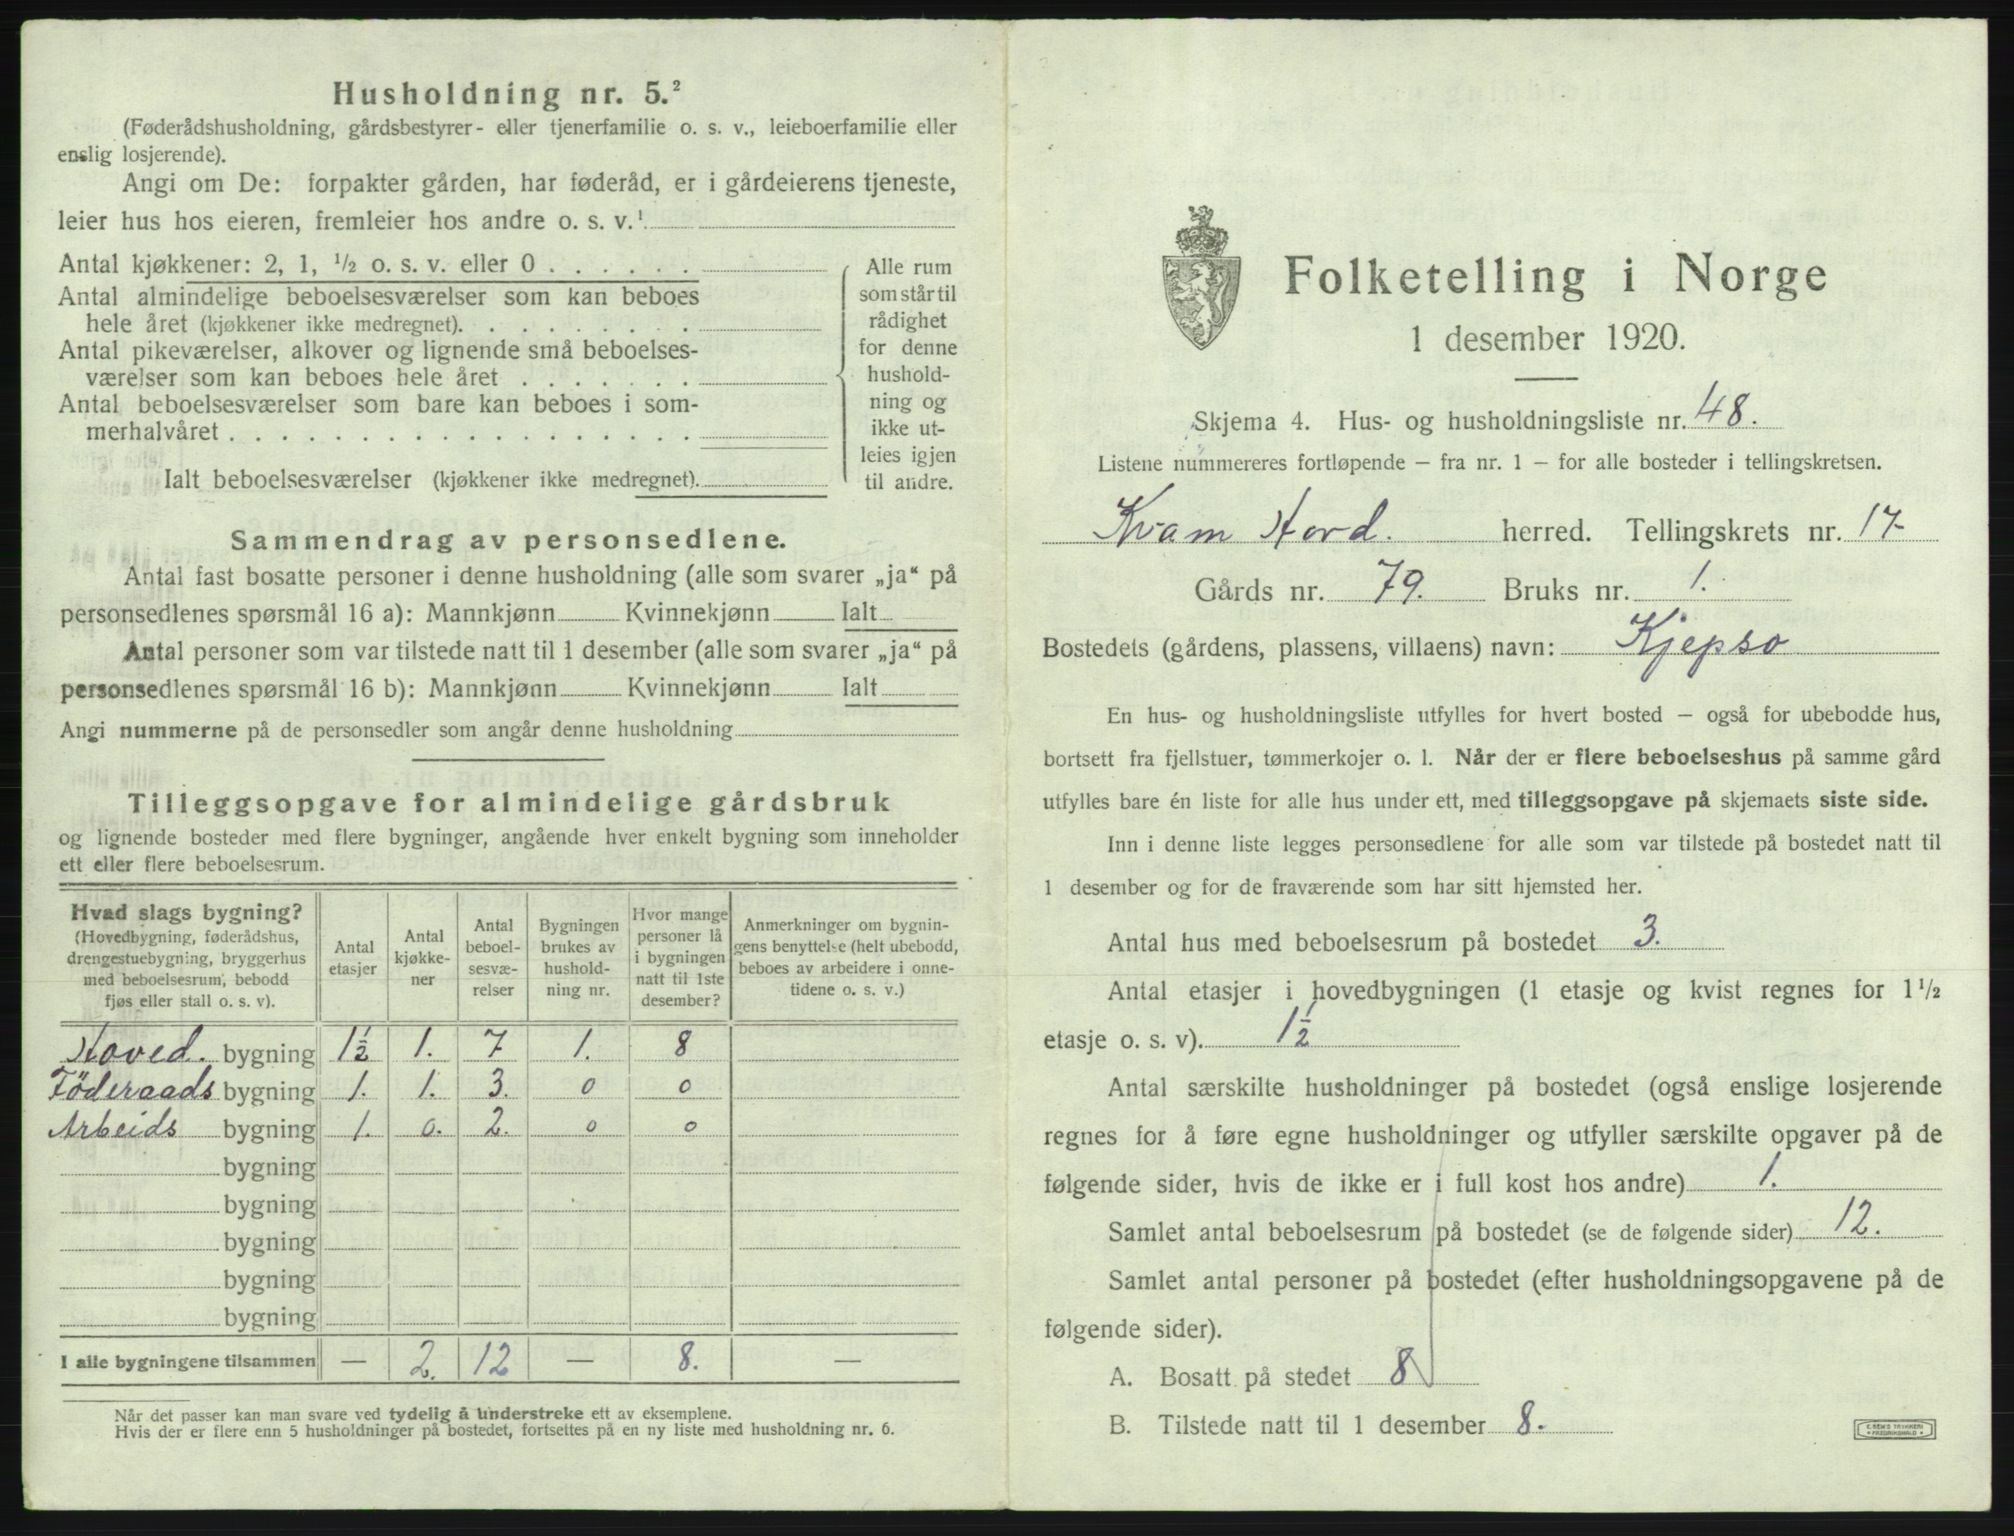 Husholdning nr. 5.²
(Føderådshusholdning, gårdsbestyrer- eller tjenerfamilie o. s. v., leieboerfamilie eller
enslig losjerende).
Angi om De: forpakter gården, har føderåd, er i gårdeierens tjeneste,
leier hus hos eieren, fremleier hos andre o. s. v.¹
Antal kjøkkener: 2, 1, ½ o. s. v. eller 0 . . . . . .
Antal almindelige beboelsesværelser som kan beboes
hele året (kjøkkener ikke medregnet). . . . . . . . .
Antal pikeværelser, alkover og lignende små beboelses-
værelser som kan beboes hele året . . . . . . .
Antal beboelsesværelser som bare kan beboes i som-
merhalvåret . . . . . . . . . . . . . . . . . .
Ialt beboelsesværelser (kjøkkener ikke medregnet).
Alle rum
som står til
rådighet
for denne
hushold-
ning og
ikke ut-
leies igjen
til andre.
Sammendrag av personsedlene.
Antal fast bosatte personer i denne husholdning (alle som svarer „ja“ på
personsedlenes spørsmål 16 a): Mannkjønn Kvinnekjønn Ialt
Antal personer som var tilstede natt til 1 desember (alle som svarer „ja“ på
personsedlenes spørsmål 16 b): Mannkjønn Kvinnekjønn Ialt
Angi nummerne på de personsedler som angår denne husholdning
Tilleggsopgave for almindelige gårdsbruk
og lignende bosteder med flere bygninger, angående hver enkelt bygning som inneholder
ett eller flere beboelsesrum.
Hvad slags bygning?
(Hovedbygning, føderådshus,
drengestuebygning, bryggerhus
med beboelsesrum, bebodd
fjøs eller stall o. s. v).
Antal
etasjer
Antal
kjøkke-
ner
Antal
beboel-
sesvæ-
relser
Bygningen
brukes av
hushold-
ning nr.
Hvor mange
personer lå
i bygningen
natt til 1ste
desember?
Anmerkninger om bygnin-
gens benyttelse (helt ubebodd,
beboes av arbeidere i onne-
tidene o. s. v.)
Hoved. bygning 1½ 1. 7 1. 8
Föderaads bygning 1. 1. 3. 0 0
Arbeids bygning 1. 0. 2. 0 0
bygning
bygning
bygning
bygning
bygning
I alle bygningene tilsammen — 2. 12 — 8. —
Når det passer kan man svare ved tydelig å understreke ett av eksemplene.
Hvis der er flere enn 5 husholdninger på bostedet, fortsettes på en ny liste med husholdning nr. 6.
Folketelling i Norge
1 desember 1920.
Skjema 4. Hus- og husholdningsliste nr. 48.
Listene nummereres fortløpende — fra nr. 1 — for alle bosteder i tellingskretsen.
Kvam Hord. herred. Tellingskrets nr. 17
Gårds nr. 79. Bruks nr. 1.
Bostedets (gårdens, plassens, villaens) navn: Kjepso
En hus- og husholdningsliste utfylles for hvert bosted — også for ubebodde hus,
bortsett fra fjellstuer, tømmerkojer o. l. Når der er flere beboelseshus på samme gård
utfylles bare én liste for alle hus under ett, med tilleggsopgave på skjemaets siste side.
Inn i denne liste legges personsedlene for alle som var tilstede på bostedet natt til
1 desember og for de fraværende som har sitt hjemsted her.
Antal hus med beboelsesrum på bostedet 3.
Antal etasjer i hovedbygningen (1 etasje og kvist regnes for 1½
etasje o. s. v). 1½
Antal særskilte husholdninger på bostedet (også enslige losjerende
regnes for å føre egne husholdninger og utfyller særskilte opgaver på de
følgende sider, hvis de ikke er i full kost hos andre) 1.
Samlet antal beboelsesrum på bostedet (se de følgende sider) 12.
Samlet antal personer på bostedet (efter husholdningsopgavene på de
følgende sider).
A. Bosatt på stedet 8
B. Tilstede natt til 1 desember 8.